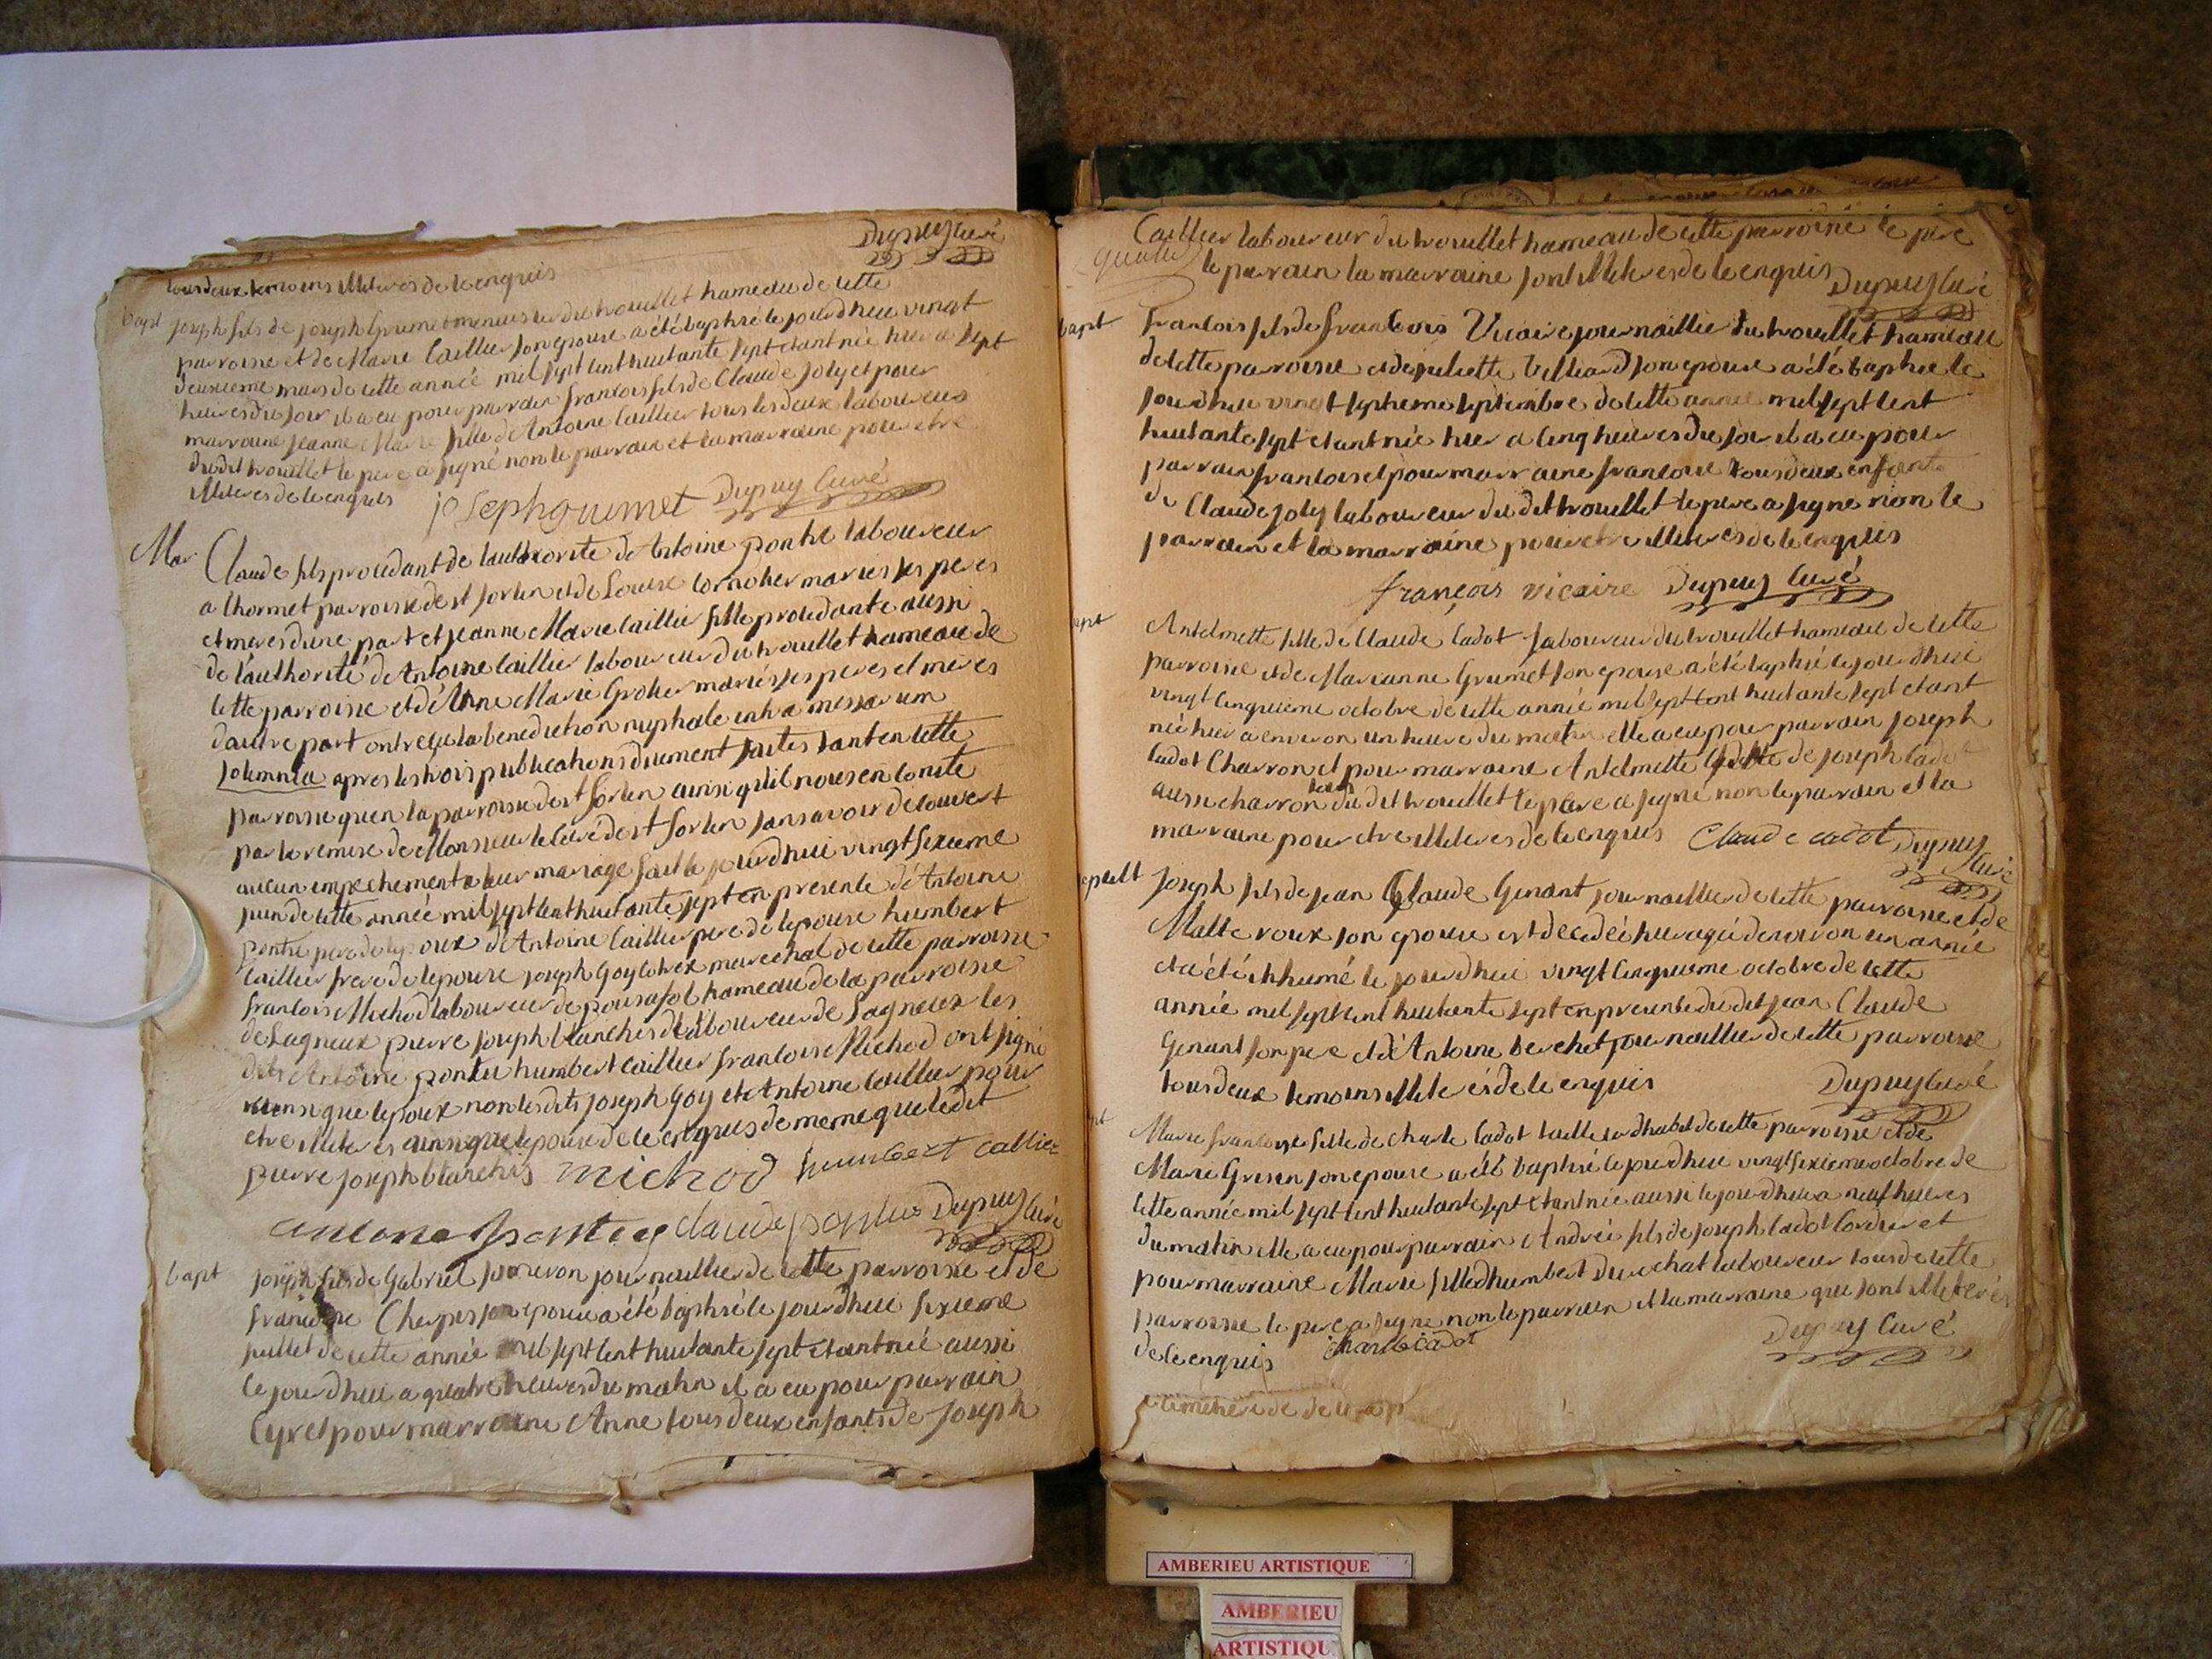 Dupuy Curé
tous deux temoins illiteres de ce enquis
bapt joseph fils de joseph Grumet menuisier du trouillet hameau de cette
parroisse et de Marie Caillier son epouse a été baptisé le jourdhui vingt
deuxieme mars de cette année mil sept cent huitante sept etant née hier a sept
heures du soir il a eu pour parrain francois fils de Claude Joly et pour
marraine jeanne Marie fille de Antoine Caillier tous les deux laboureurs
du dit trouillet le pere a signé non le parrain et la marraine pour etre
illiteres de ce enquis
joseph grumet Dupuy Curé
Mar Claude fils procedant de lauthorité de Antoine pontu laboureur
a lhormet parroisse de st sorlin et de Louise Cornoher mariés ses peres
et meres dune part et jeanne Marie Caillier fille procedante aussi
de l'authorité de Antoine Caillier laboureur du trouillet hameau de
cette parroisse et de Anne Marie Groher mariés ses peres et meres
dautre part ont reçu la benediction nuptiale intra missarum
solemnia apres les trois publications duement faites tant en cette
parroisse quen la parroisse de st sorlin ainsi quil nous en conste
par la remise de Monsieur le Curé de st sorlin sans avoir decouvert
aucun empechement a leur mariage fait le jourdhui vingt sixieme
juin de cette année mil sept cent huitante sept en presente de Antoine
pontu pere de lepoux de Antoine Caillier pere de lepouse humbert
Caillier frere de lepouse joseph Goy marechal de cette parroisse
francois Michod laboureur de pousafol hameau de la parroisse
de Lagneux pierre joseph blanchis laboureur de Lagneux les
dits Antoine pontu humbert Caillier francois Michod ont signé
ainsi que lepoux non les dits joseph Goy et Antoine Caillier pour
etre illiteres ainsi que lepouse de ce enquis de meme que le dit
pierre joseph blanchis michod humbert callier
antoine pontu claude pontu Dupuy Curé
bapt joseph fils de Gabriel journaillier de cette parroisse et de
francoise Cherpes son epouse a été baptisé le jourdhui sixieme
juillet de cette année mil sept cent huitante sept etant née aussi
le jourdhui a quatre heures du matin il a eu pour parrain
Cyr et pour marraine Anne tous deux enfants de joseph
Caillier laboureur du trouillet hameau de cette parroisse le pere
le parrain la marraine sont illiteres de ce enquis Dupuy Curé
bapt francois fils de francois Vicaire journaillier du trouillet hameau
de cette parroisse et de juliette Villiard son epouse a été baptisé le
jourdhui vingt septieme septembre de cette année mil sept cent
huitante sept etant née hier a cinq heures du soir il a eu pour
parrain francois et pour marraine francoise tous deux enfants
de Claude joly laboureur du dit trouillet le pere a signe non le
parrain et la marraine pour etre illiteres de ce enquis
françois vicaire Dupuy Curé
apt Antelmette fille de Claude Cadot laboureur du trouillet hameau de cette
parroisse et de Marianne Grumet son epouse a été baptisé le jourdhui
vingt cinquieme octobre de cette année mil sept cent huitante sept etant
née hier a environ un heure du matin elle a eu pour parrain joseph
Cadot Charron et pour marraine Antelmette de joseph Cadot
aussi charron tous du dit trouillet le pere a signé non le parrain et la
marraine pour etre illiteres de ce enquis Claude cadot Dupuy
Curé
sepult joseph fils de jean Claude Genant journaillier de cette parroisse et de
Matte roux son epouse est decedé hier agé denviron un année
et a été inhumé le jourdhui vingt cinquieme octobre de cette
année mil sept cent huitante sept en presente du dit jean Claude
Genant son pere et de Antoine berchet journaillier de cette parroisse
tous deux temoins illiterés de ce enquis Dupuy Curé
Marie francoise fille de charle Cadot tailleur dhabit de cette parroisse et de
Marie Grisen son epouse a été baptisé le jourdhui vingt sixieme octobre de
cette année mil sept cent huitante sept etant née aussi le jourdhui a neuf heures
du matin elle a eu pour parrain André fils de joseph Cadot et
pour marraine Marie fille dhumbert Durochat laboureur tous de cette
parroisse le pere a signe non le parrain et la marraine qui sont illiterés
de ce enquis charle cadot Dupuy Curé
AMBERIEU ARTISTIQUE
AMBERIEU
ARTISTIQU